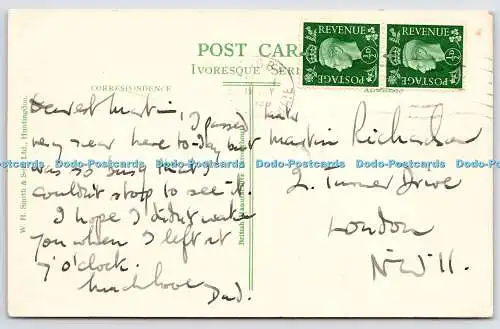 POST CAR
IVORESQUE SERI
CORRESPONDENCE
ADDRESS
REVENUE
½D
POSTAGE
REVENUE
½D
POSTAGE
Dearest Martin,
I passed
very near here to-day but
was so busy that I
couldn't stop to see it.
I hope I didn't wake
you when I left at
7 o'clock.
Much love
Dad.
Martin Richardson
2. Turner Drive
London
N.W.11.
W. H. Smith & Son, Ltd., Huntingdon.
British Manufacture
Dodo-Postcards Dodo-Postcards Dodo-Postcards Dodo-Postcards Dodo-Postcards